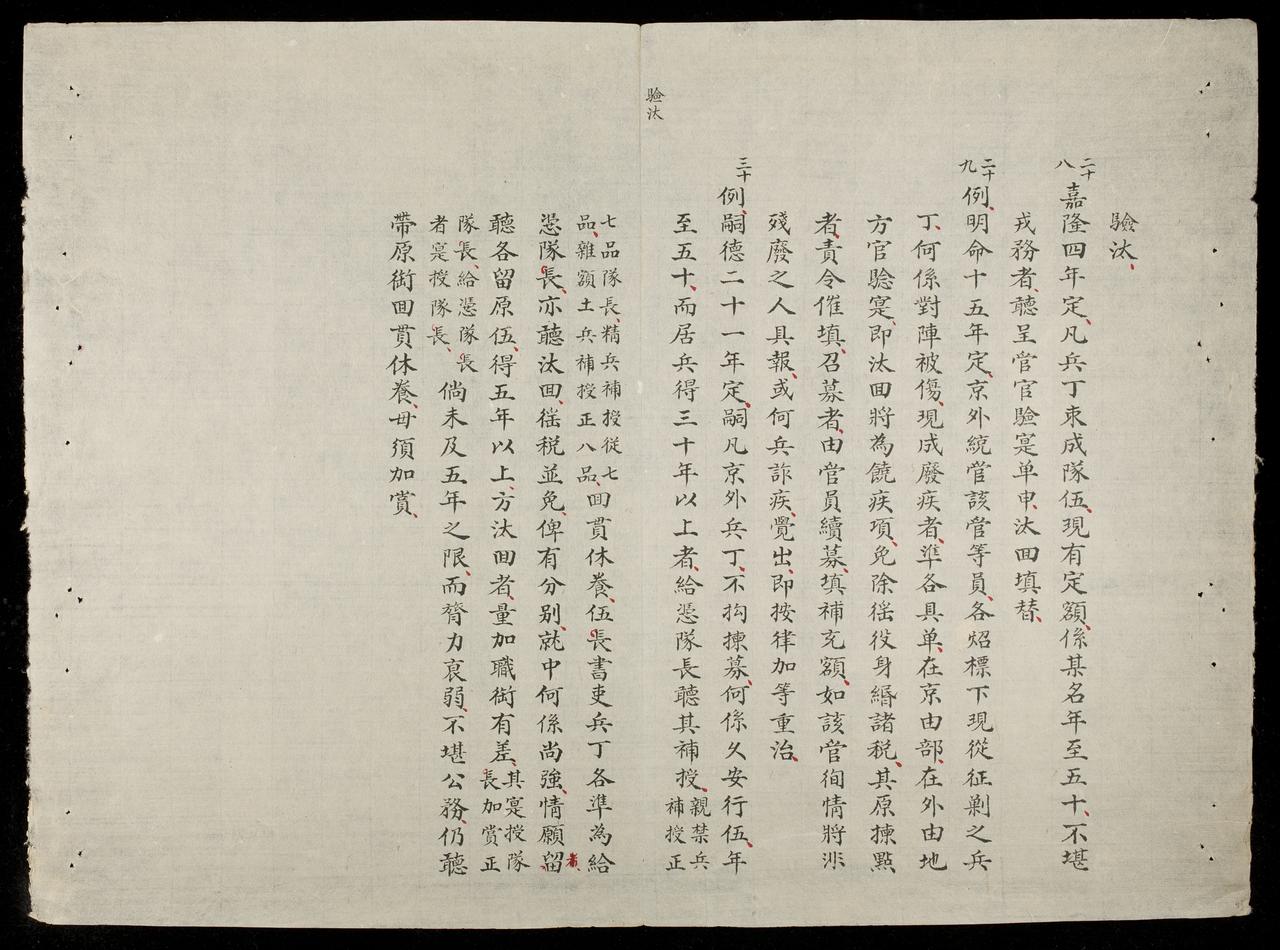 驗汰
驗汰、
二十八嘉隆四年定、凡兵丁束成隊伍、現有定額、係某名年至五十、不堪
戎務者、聽呈官官驗寔单申、汰回填替、
二十九例、明命十五年定、京外統管該管等員、各炤標下現從征剿之兵
丁、何係對陣被傷、現成廢疾者、準各具单、在京由部、在外由地
方官驗寔、即汰回將為饒疾項、免除徭役身緡諸税、其原揀點
者、責令催填、召募者、由管員續募、填補充額、如該管徇情將非
殘廢之人具報、或何兵詐疾、覺出、即按律加等重治、
三十例、嗣德二十一年定、嗣凡京外兵丁、不拘揀募、何係久安行伍、年
至五十、而居兵得三十年以上者、給憑隊長聽其補授、親禁兵補授正
七品隊長、精兵補授從七品、雜額土兵補授正八品、回貫休養、伍長書吏兵丁各準為給
憑隊長、亦聽汰回、徭税並免、俾有分别、就中何係尚強、情願留者、
聽各留原伍、得五年以上、方汰回者、量加職銜有差、其寔授隊長加賞正
隊長、給憑隊長者寔授隊長、倘未及五年之限、而膂力衰弱、不堪公務、仍聽
帶原銜回貫休養、毋須加賞、